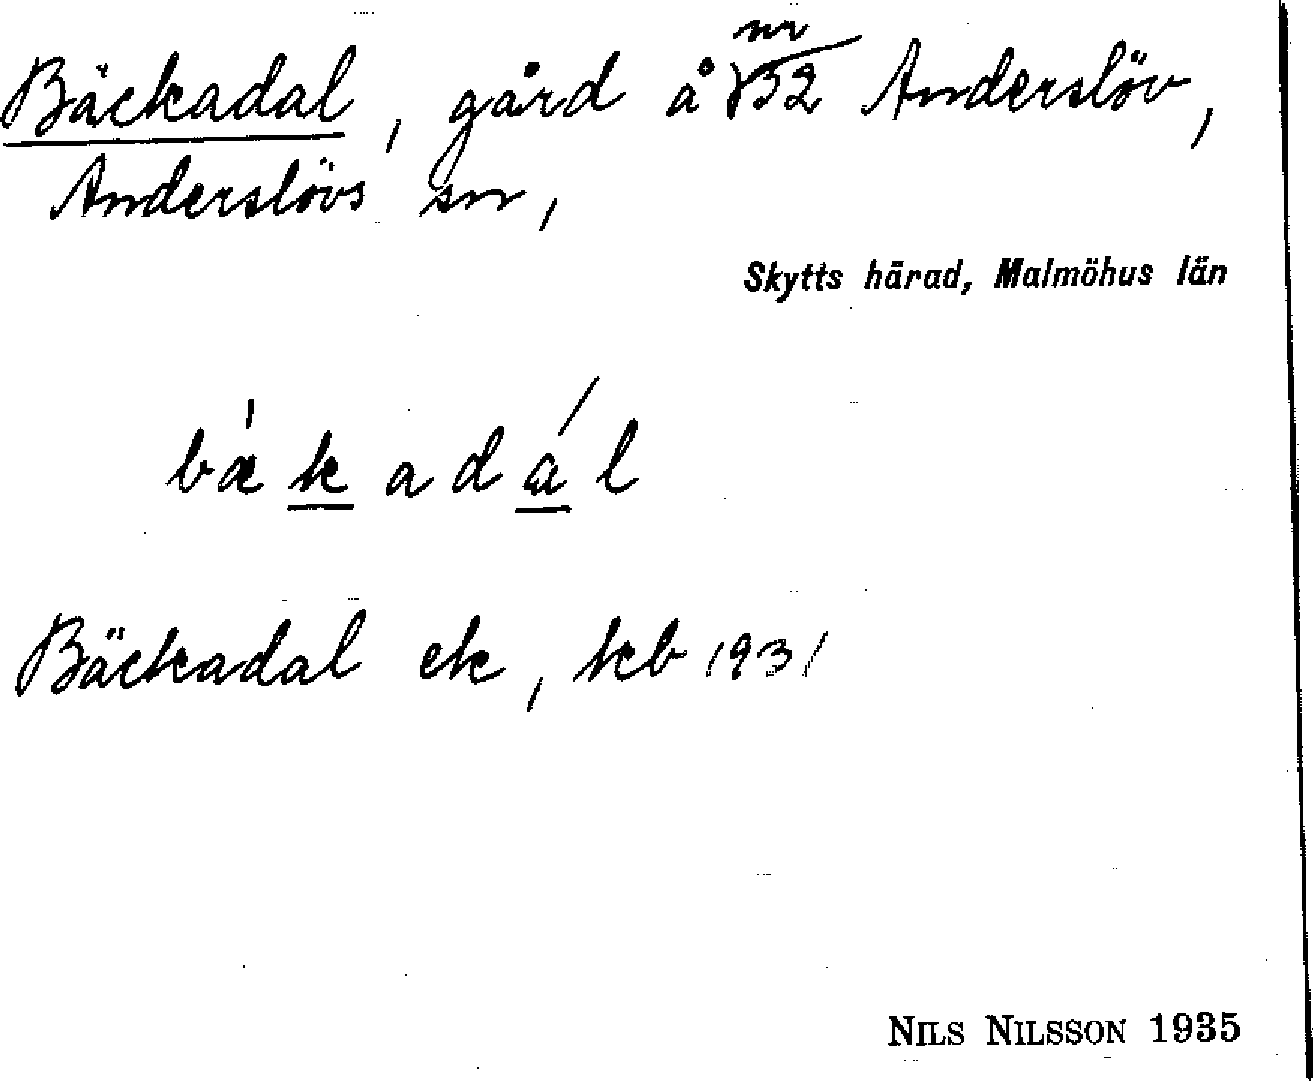 Bäckadal, gård å nr 32 Anderslöv,
Anderslövs sn,
Skytts härad, Malmöhus län
bækadál
Bäckadal ek, kb 1931
NILS NILSSON 1935